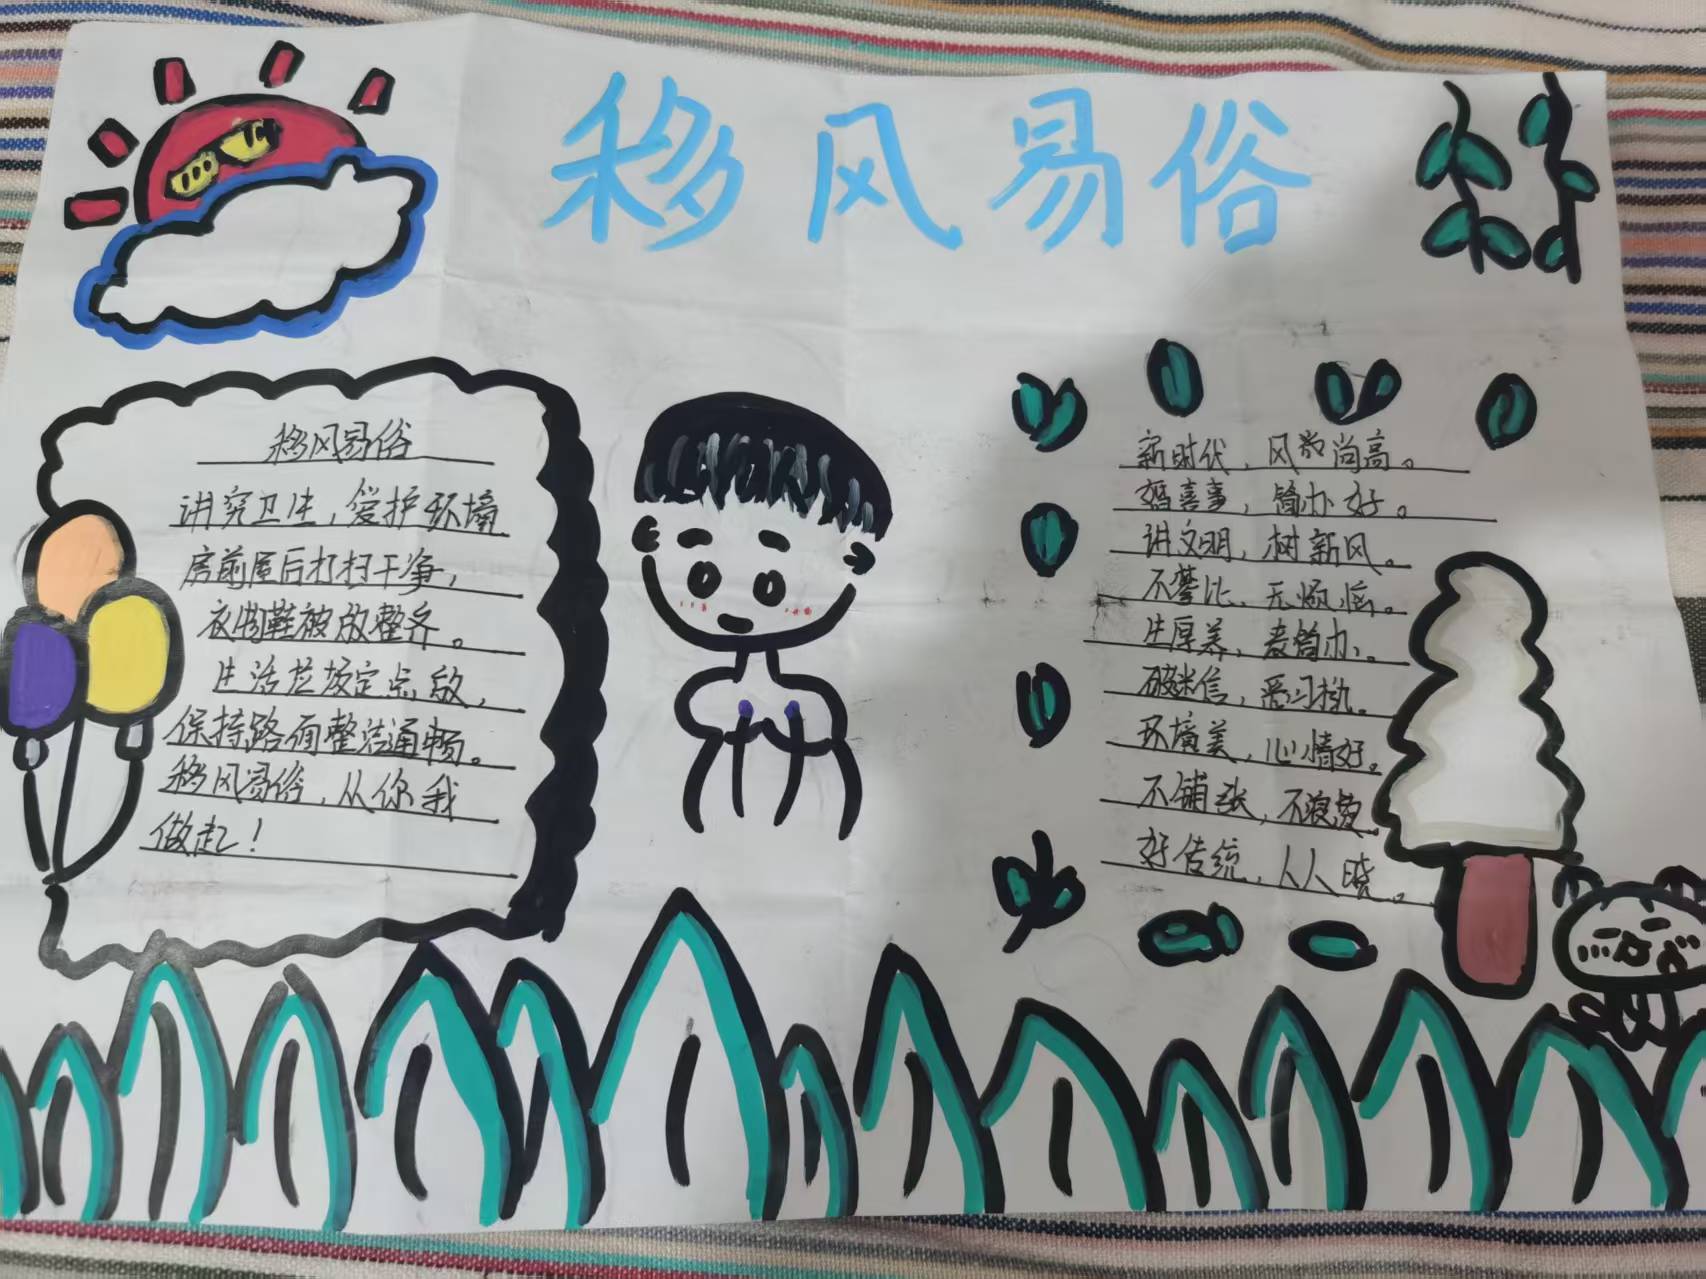 移风易俗
移风易俗
讲究卫生，爱护环境
房前屋后打扫干净，
衣物鞋被放整齐。
生活垃圾定点放，
保持路面整洁通畅。
移风易俗，从你我
做起！
新时代，风尚高。
婚喜事，简办好。
讲文明，树新风。
不攀比，无烦恼。
生厚养，丧简办。
破迷信，恶习抛。
环境美，心情好。
不铺张，不浪费
好传统，人人晓。